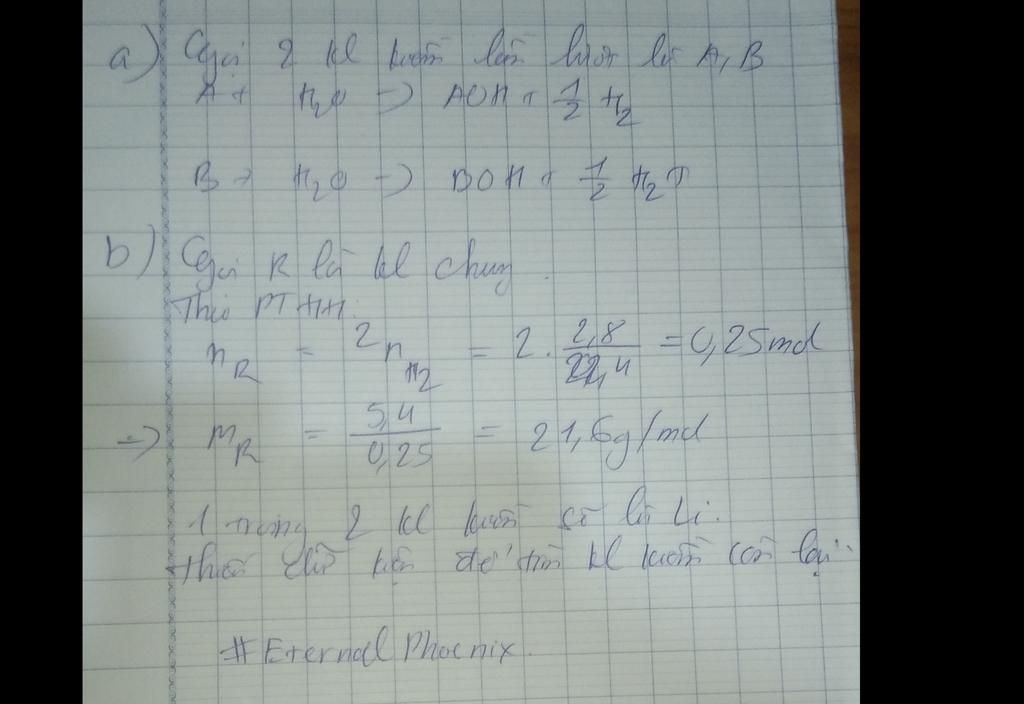 a) Gọi 2 kl kiềm lần lượt là A, B
A + H₂O -> AOH + 1/2 H₂
B + H₂O -> BOH + 1/2 H₂↑
b) Gọi R là kl chung.
Theo PTHH:
n_R = 2n_H₂ = 2. 2,8/22,4 = 0,25mol
=> M_R = 5,4/0,25 = 21,6g/mol
1 trong 2 kl kiềm sẽ là Li.
thiếu dữ kiện để tìm kl kiềm còn lại.
#Eternal Phoenix.